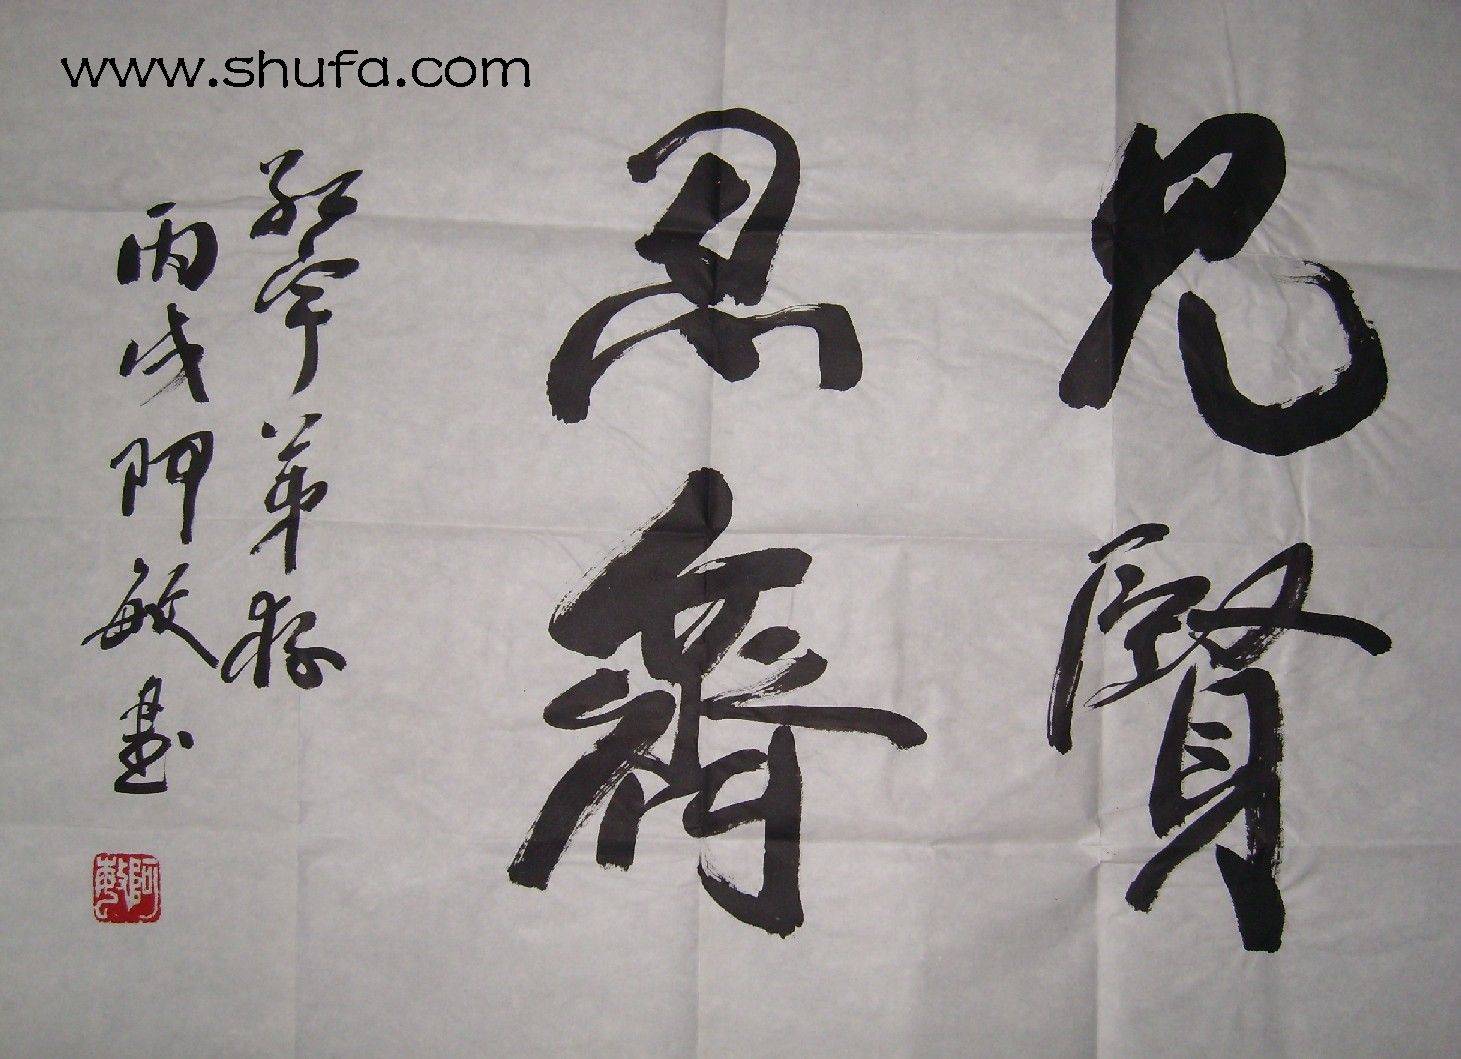 www.shufa.com
見賢
思齊
宇弟存
丙戌阿敏書
阿敏